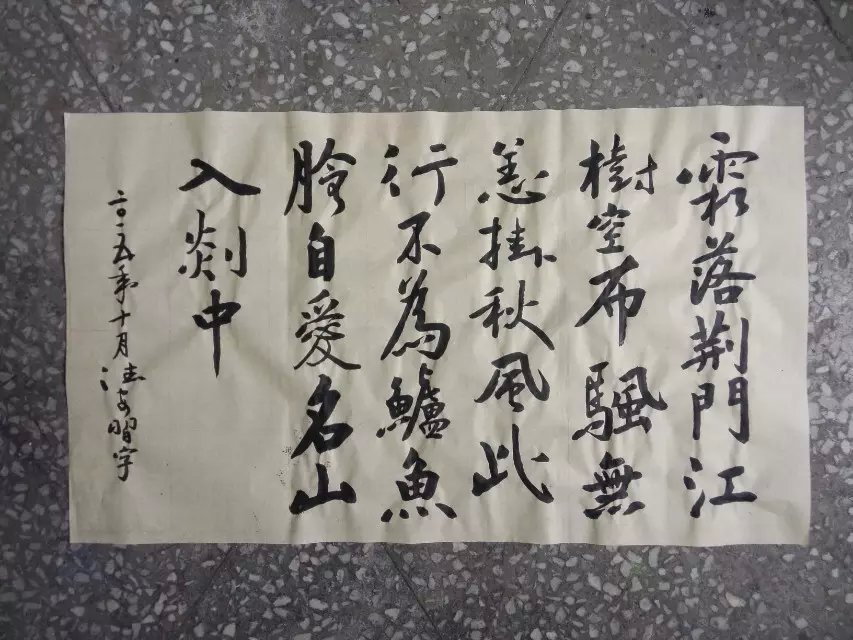 霜落荆門江
樹空布颿無
恙掛秋風此
行不為鱸魚
膾自愛名山
入剡中
二〇一五年十月習字